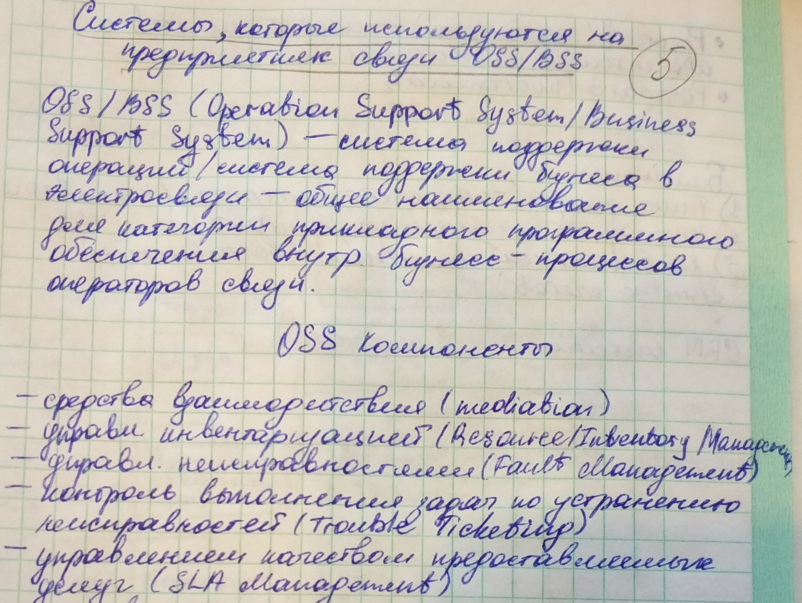 Системы, которые используются на
предприятиях связи OSS/BSS
5
OSS/BSS (Operation Support System/Business
Support System) — система поддержки
операций/система поддержки бизнеса в
электросвязи — общее наименование
для категории прикладного программного
обеспечения внутр. бизнес-процессов
операторов связи.
OSS компоненты
— средства взаимодействия (mediation)
— управл. инвентаризацией (Resource/Inventory Management)
— управл. неисправностями (Fault Management)
— контроль выполнения задач по устранению
неисправностей (Trouble Ticketing)
— управлением качеством предоставляемых
услуг (SLA Management)